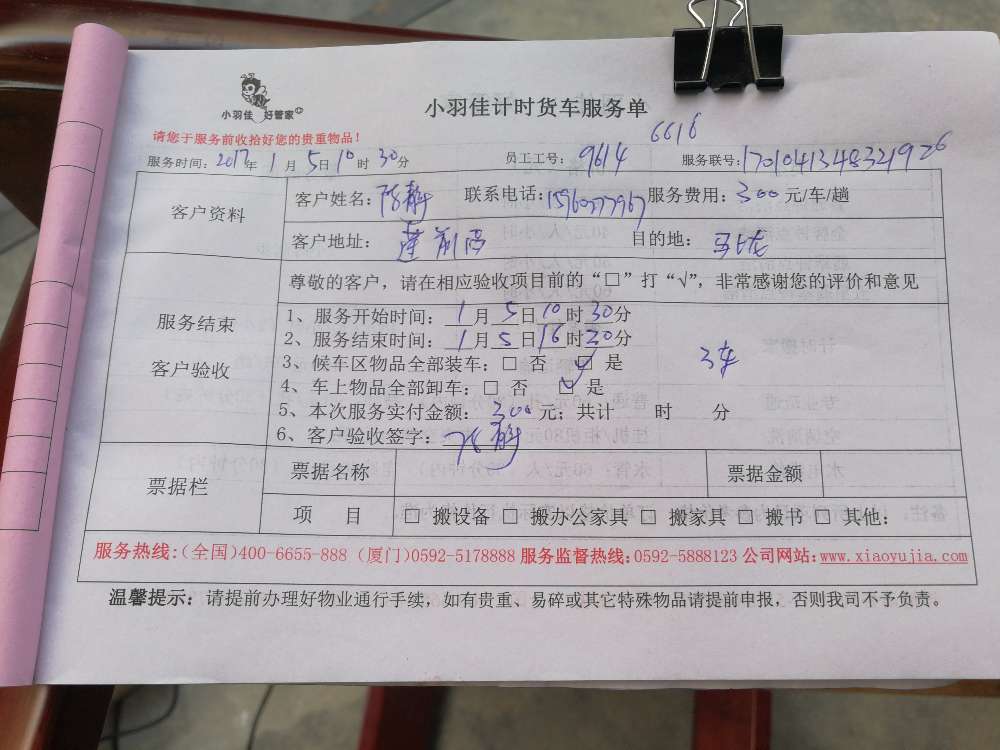 小羽佳 好管家
小羽佳计时货车服务单
请您于服务前收拾好您的贵重物品！
6616
服务时间：2017年1月5日10时30分 员工工号：9614 服务联号：1701041348321926
客户资料
客户姓名：陈静 联系电话：15960277967 服务费用：300元/车/趟
客户地址：莲前西 目的地：马垅
服务结束
客户验收
尊敬的客户，请在相应验收项目前的“□”打“√”，非常感谢您的评价和意见
1、服务开始时间：1月5日10时30分
2、服务结束时间：1月5日16时30分
3、候车区物品全部装车：□ 否 ☑ 是
3车
4、车上物品全部卸车：□ 否 ☑ 是
5、本次服务实付金额：300元；共计 时 分
6、客户验收签字：陈静
票据栏
票据名称 票据金额
项 目 □ 搬设备 □ 搬办公家具 □ 搬家具 □ 搬书 □ 其他：
服务热线：（全国）400-6655-888（厦门）0592-5178888 服务监督热线：0592-5888123 公司网站：www.xiaoyujia.com
温馨提示：请提前办理好物业通行手续，如有贵重、易碎或其它特殊物品请提前申报，否则我司不予负责。